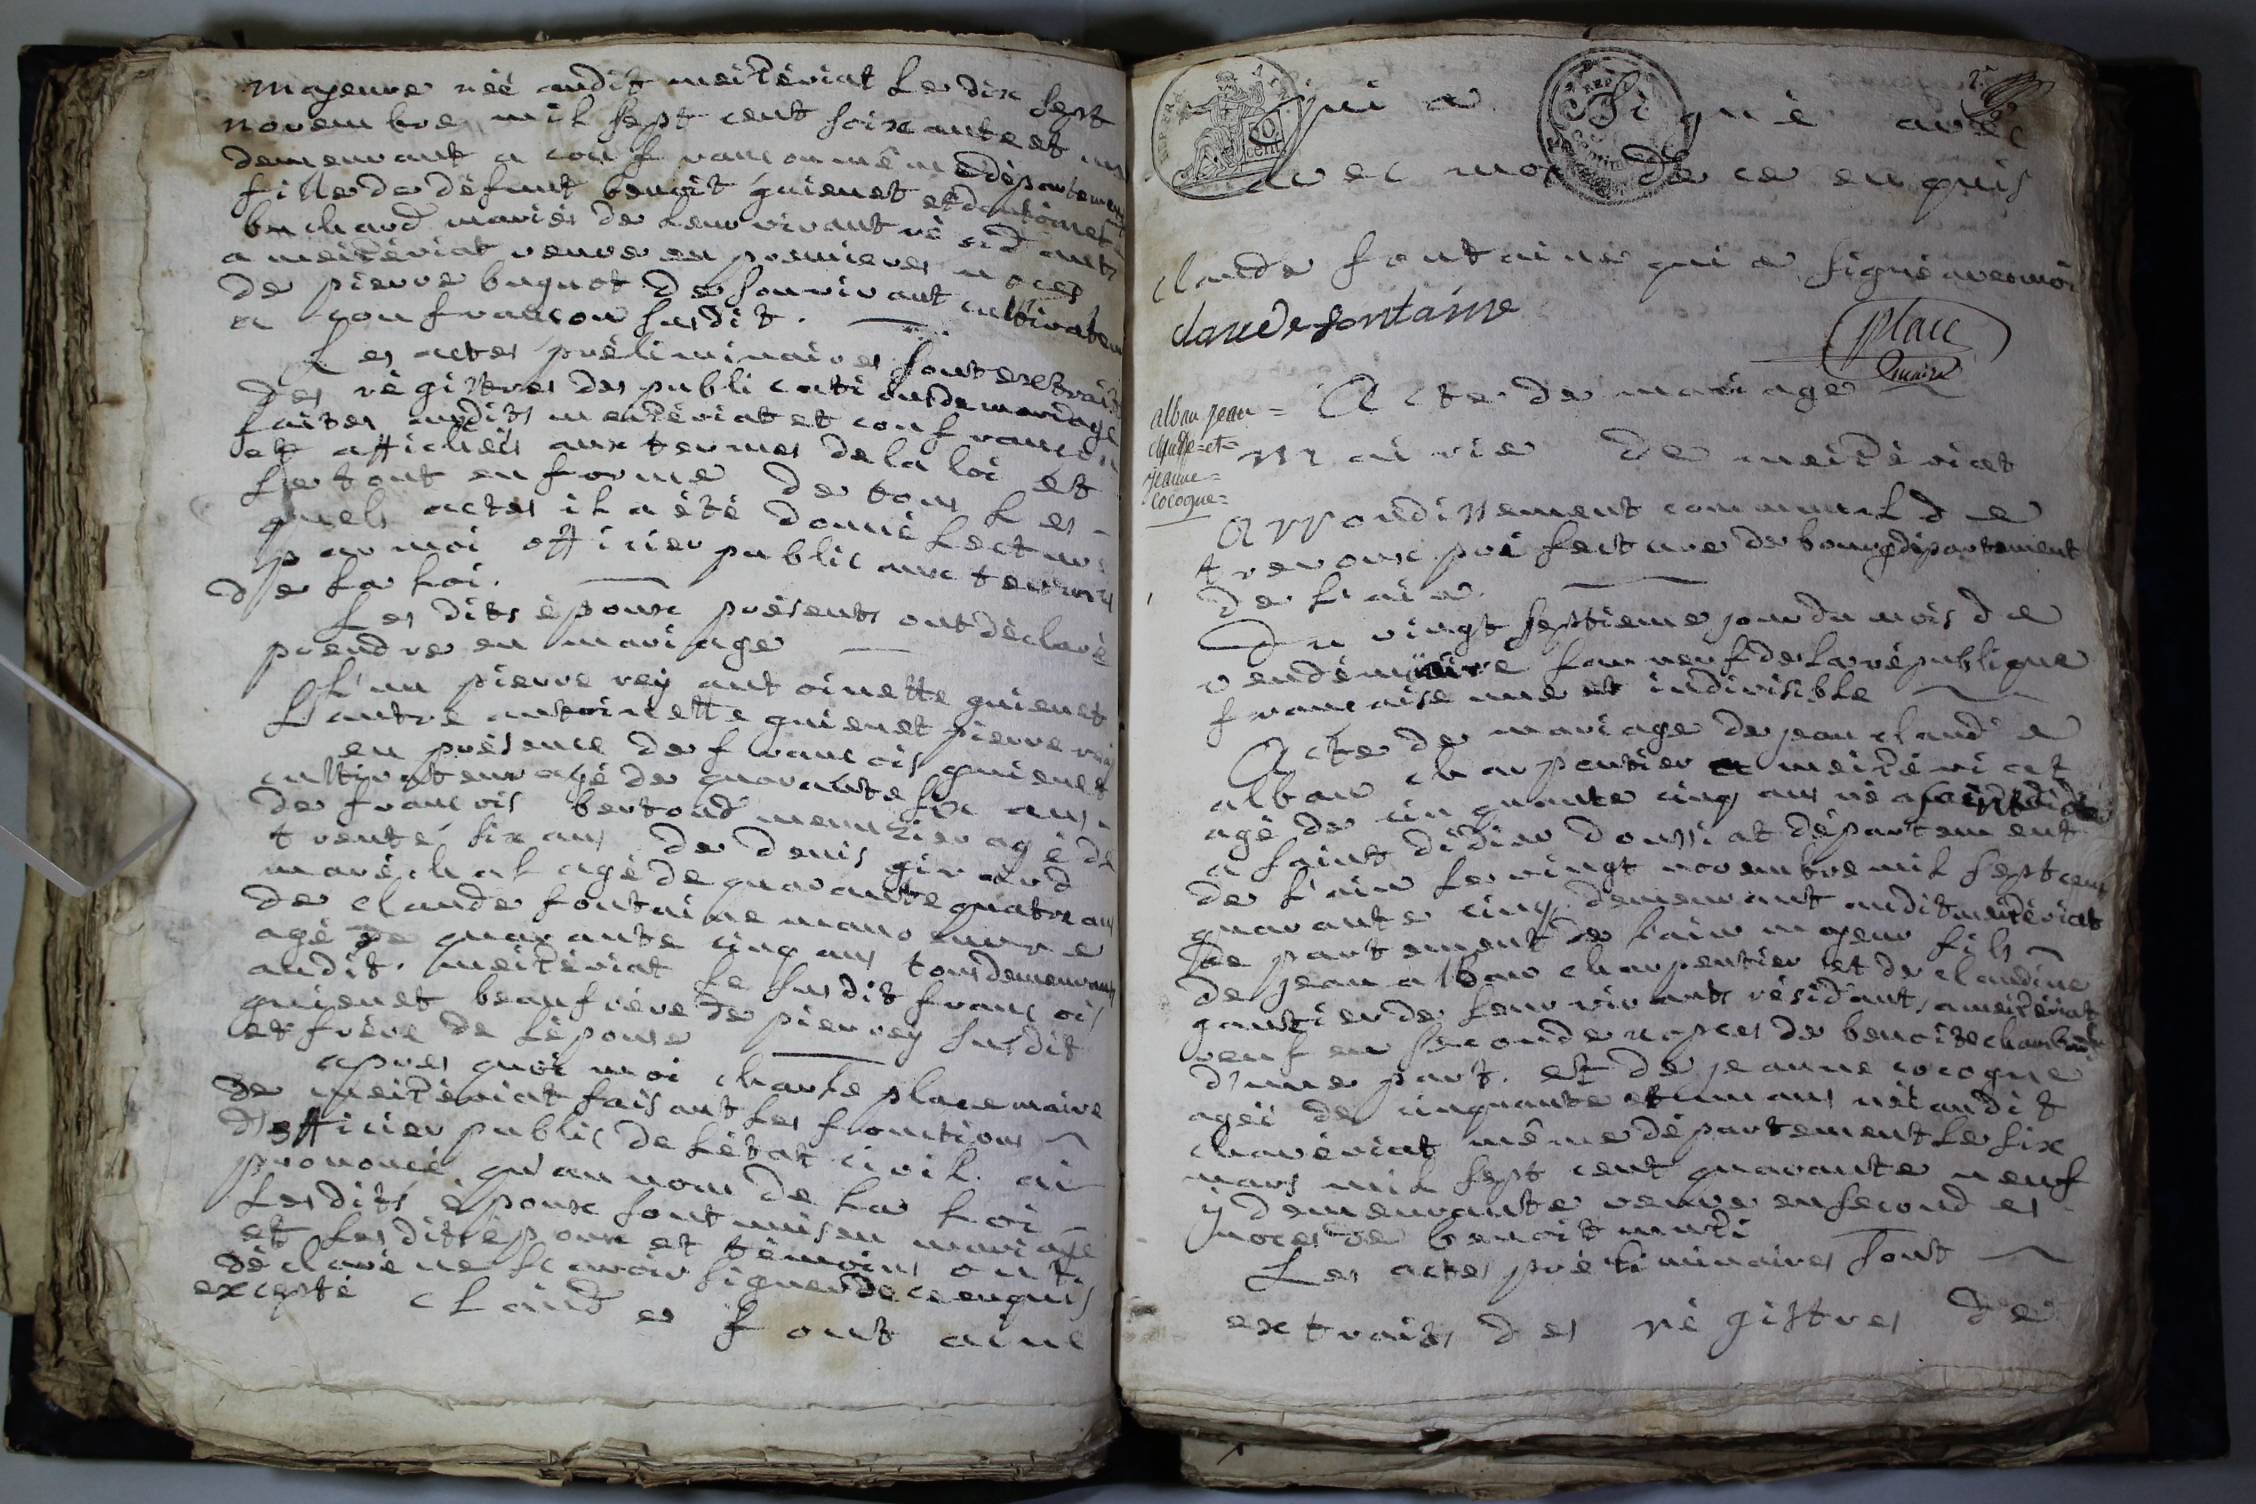 majeure née audit meizériat le dix sept
novembre mil sept cent soixante et un
demeurant a confrançon même département
fille de défunt benoit guienet et dantoinette
buchard mariés de leur vivant résidants
a meizériat veuve en premieres noces
de pierre buguot de son vivant cultivateur
a confrançon susdit.
Les actes préliminaires sont extraits
des régistres des publications de mariage
faites audits meizériat et confrançon
et affichéis aux termes de la loi et
le tout en forme de tous les
quels actes il a été donné lecture
par moi officier public aux termes
de la loi.
Les dits époux présents ont déclaré
prendre en mariage
L'un pierre rey antoinette guienet
L'autre antoinette guienet pierre rey
en présence de francois guienet
cultivateur agé de quarante six ans.
de francois bertoud menuzier agé de
trente six ans de denis girard
maréchal agé de quarante quatre ans
de claude fontaine manoeuvre
agé de quarante cinq ans tous demeurants
audit. meizériat le susdit francois
guienet beaufrère de pierrey susdit
et frère de lépouse
apres quoi moi charle place maire
de meizériat faisant les fonctions
d'officier public de létat civil. ai
prononcé qu'au nom de la loi
lesdits époux sont unis en mariage
et lesdits époux et témoins ont
déclaré ne scavoir signer de ce enquis
excepté claude fontaine
qui a signé avec
avec moi de ce enquis
claude fontaine qui a signé avec moi
claude fontaine
place
maire
alban jean
claude-et=
jeanne=
cocogne=
Acte de mariage
mairie de meizériat
Arrondissement communal de
trevoux préfecture de bourg département
de l'ain.
Du vingt septieme jour du mois de
vendémiaire lan neuf de la république
francaise une et indivisible
Acte de mariage de jean claude
alban charpentier a meizériat
agé de cinquante cinq ans né
a saint didier doussiat département
de l'ain le vingt novembre mil sept cent
quarante cinq demeurant audit meizériat
département de l'ain majeur fils
de jean alban charpentier et de claudine
gautier de leur vivants résidants a meizériat
veuf en seconde nopces de benoite
d'une part. et de jeanne cocogne
agéé de cinquante et un ans née audit
chavériat même département le six
mars mil sept cent quarante neuf
y demeurante veuve en second es
noces de benoit muti
Les actes préliminaires sont
extraits des régistres de